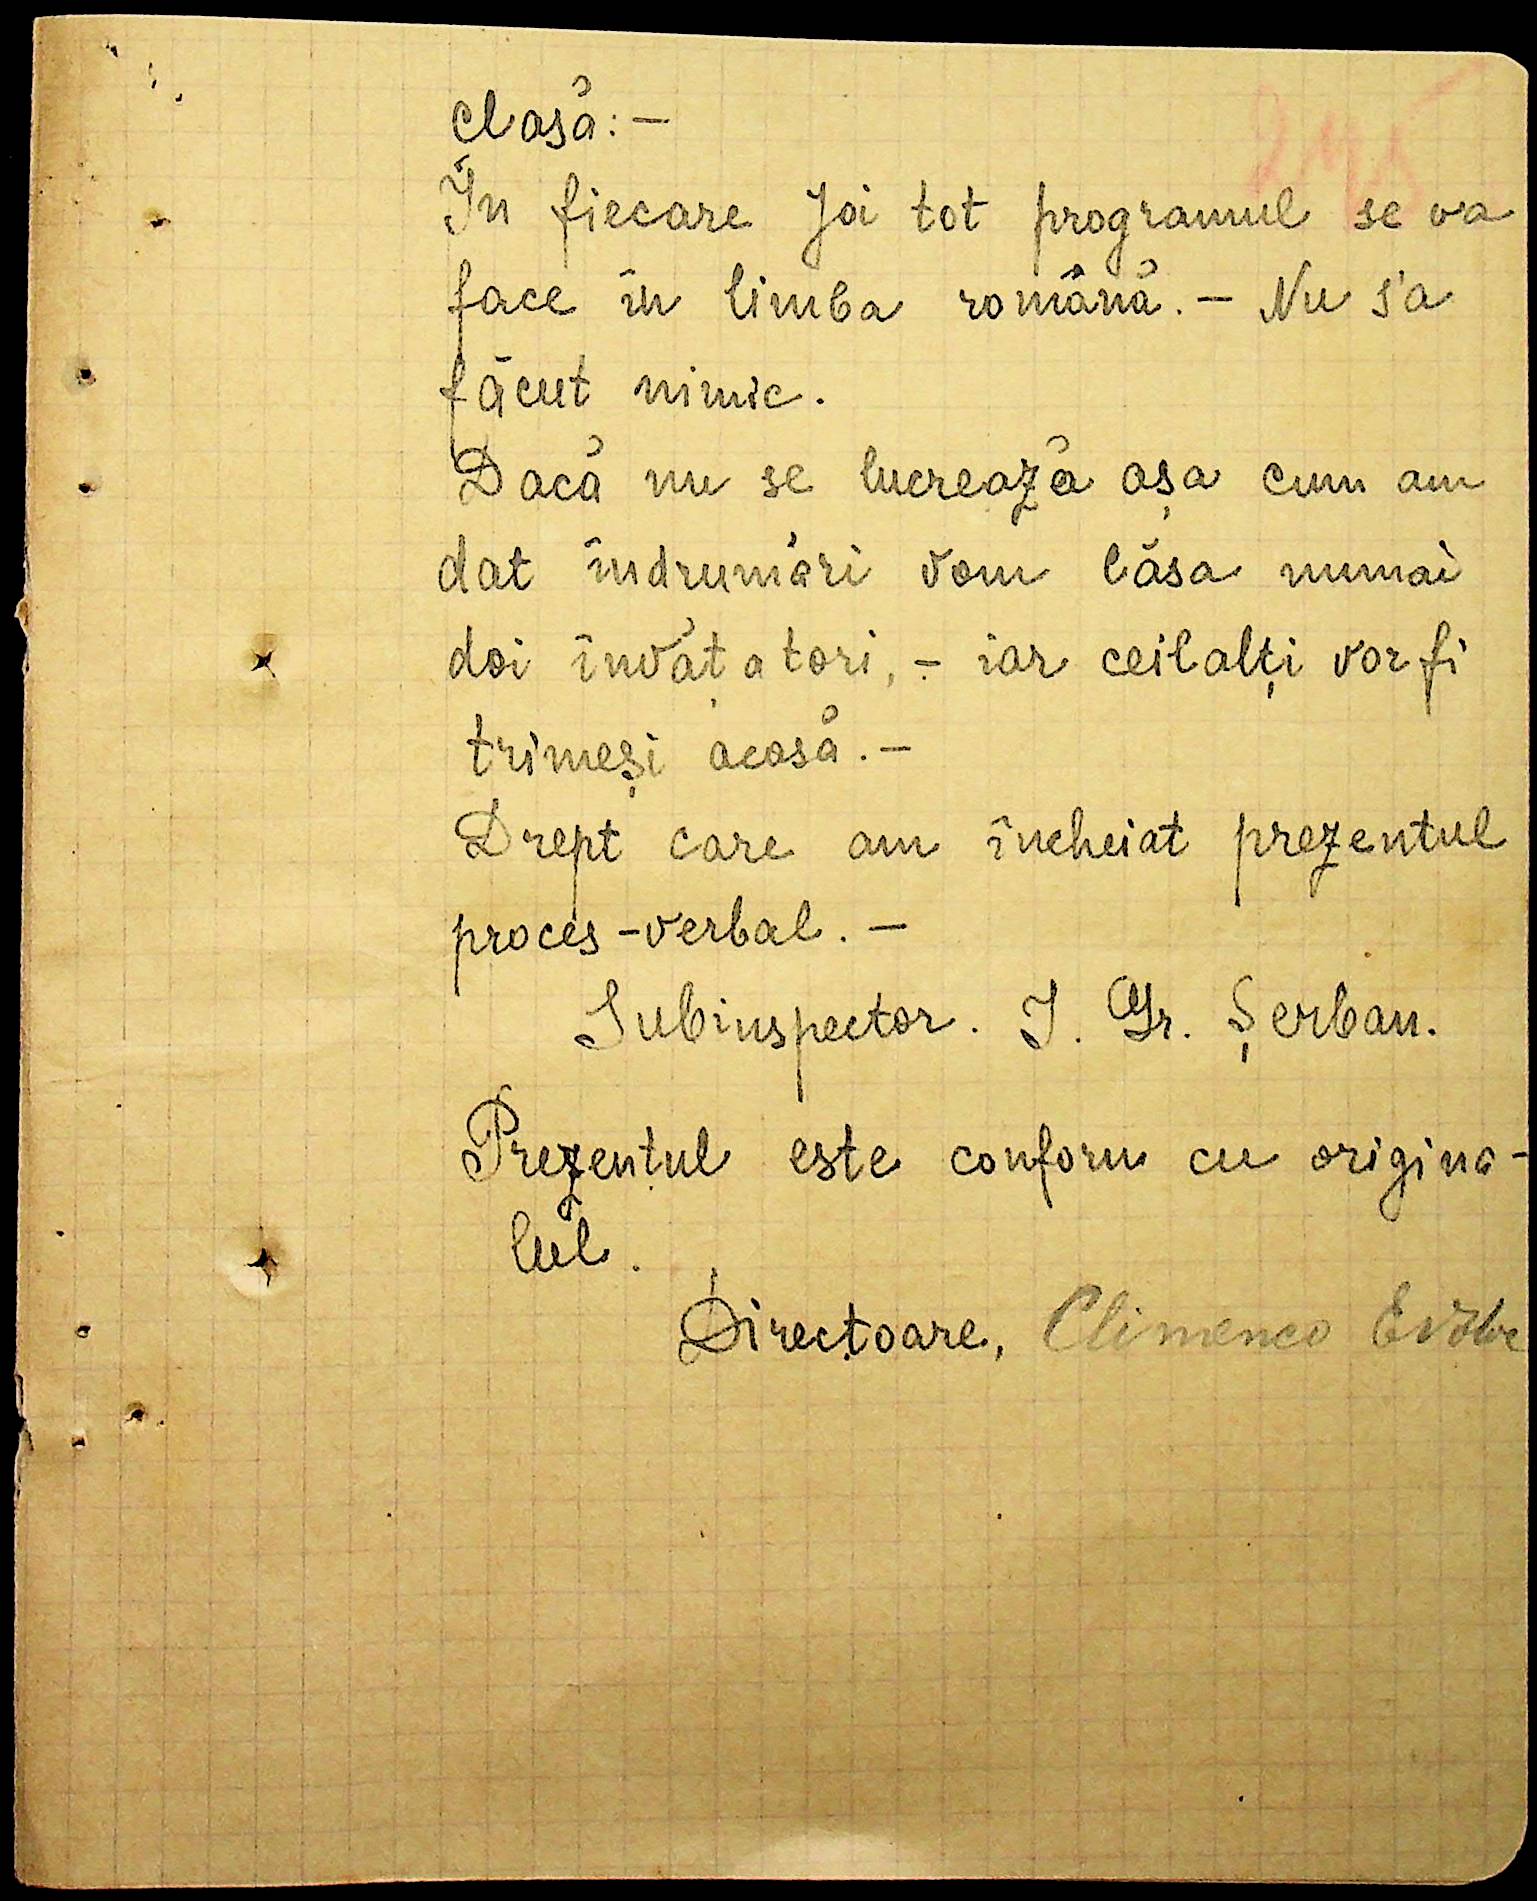 clasă: —
În fiecare Joi tot programul se va
face în limba română. — Nu s'a
făcut nimic.
Dacă nu se lucrează așa cum am
dat îndrumări vom lăsa numai
doi învățatori, – iar ceilalți vor fi
trimeși acasă. —
Drept care am încheiat prezentul
proces-verbal. —
Subinspector. I. Gr. Șerban.
Prezentul este conform cu origina-
lul.
Directoare, Climenco